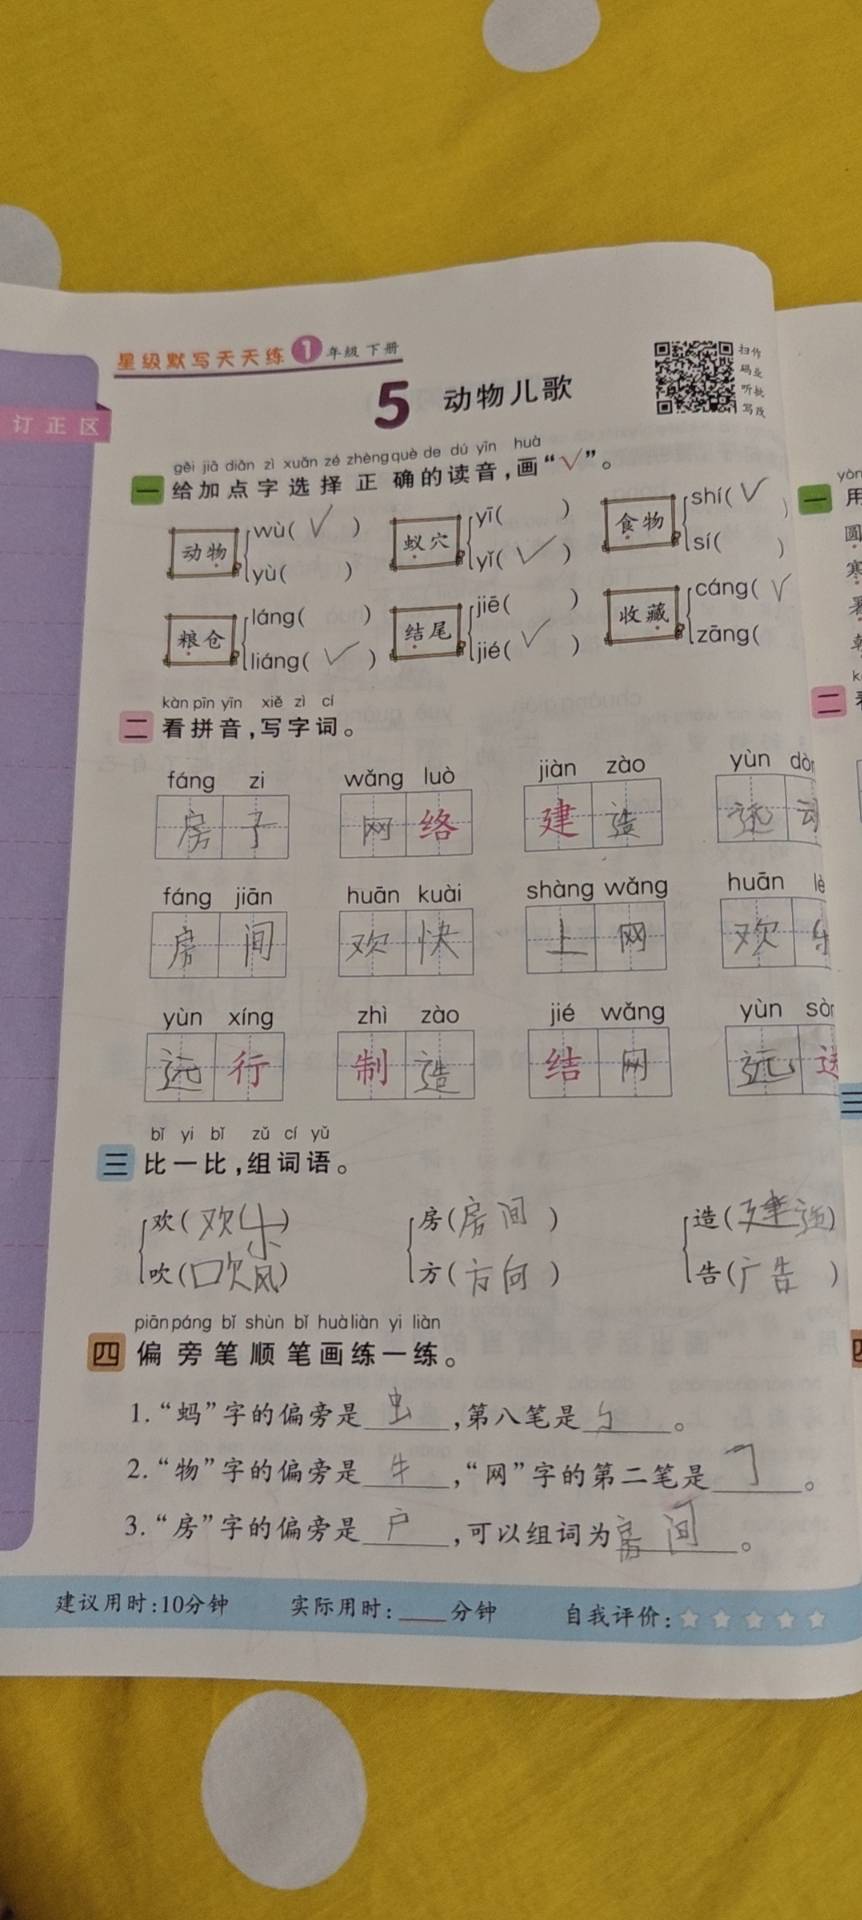 星级默写天天练 1 年级 下册
扫作
码业
听批
写改
5 动物儿歌
订正区
gěi jiā diǎn zì xuǎn zé zhèng què de dú yīn huà
一 给加点字选择正确的读音,画“√”。
动物 wù( √ ) yù( )
蚁穴 yī( ) yǐ( √ )
食物 shí( √ ) sí( )
粮仓 láng( ) liáng( √ )
结尾 jiē( ) jié( √ )
收藏 cáng( √ zāng(
kàn pīn yīn xiě zì cí
二 看拼音,写字词。
fáng zi wǎng luò jiàn zào yùn dòn
房子 网络 建造 运动
fáng jiān huān kuài shàng wǎng huān lè
房间 欢快 上网 欢乐
yùn xíng zhì zào jié wǎng yùn sòn
运行 制造 结网 运送
bǐ yi bǐ zǔ cí yǔ
三 比一比,组词语。
欢(欢乐) 房(房间) 造(建造)
吹(口欠风) 方(方向) 告(广告)
piān páng bǐ shùn bǐ huà liàn yi liàn
四 偏旁笔顺笔画练一练。
1.“蚂”字的偏旁是虫,第八笔是㇉。
2.“物”字的偏旁是牛,“网”字的第二笔是㇆。
3.“房”字的偏旁是户,可以组词为房间。
建议用时:10分钟 实际用时:____分钟 自我评价:☆☆☆☆☆
yòn
一 用
圆
寒
二
三
四